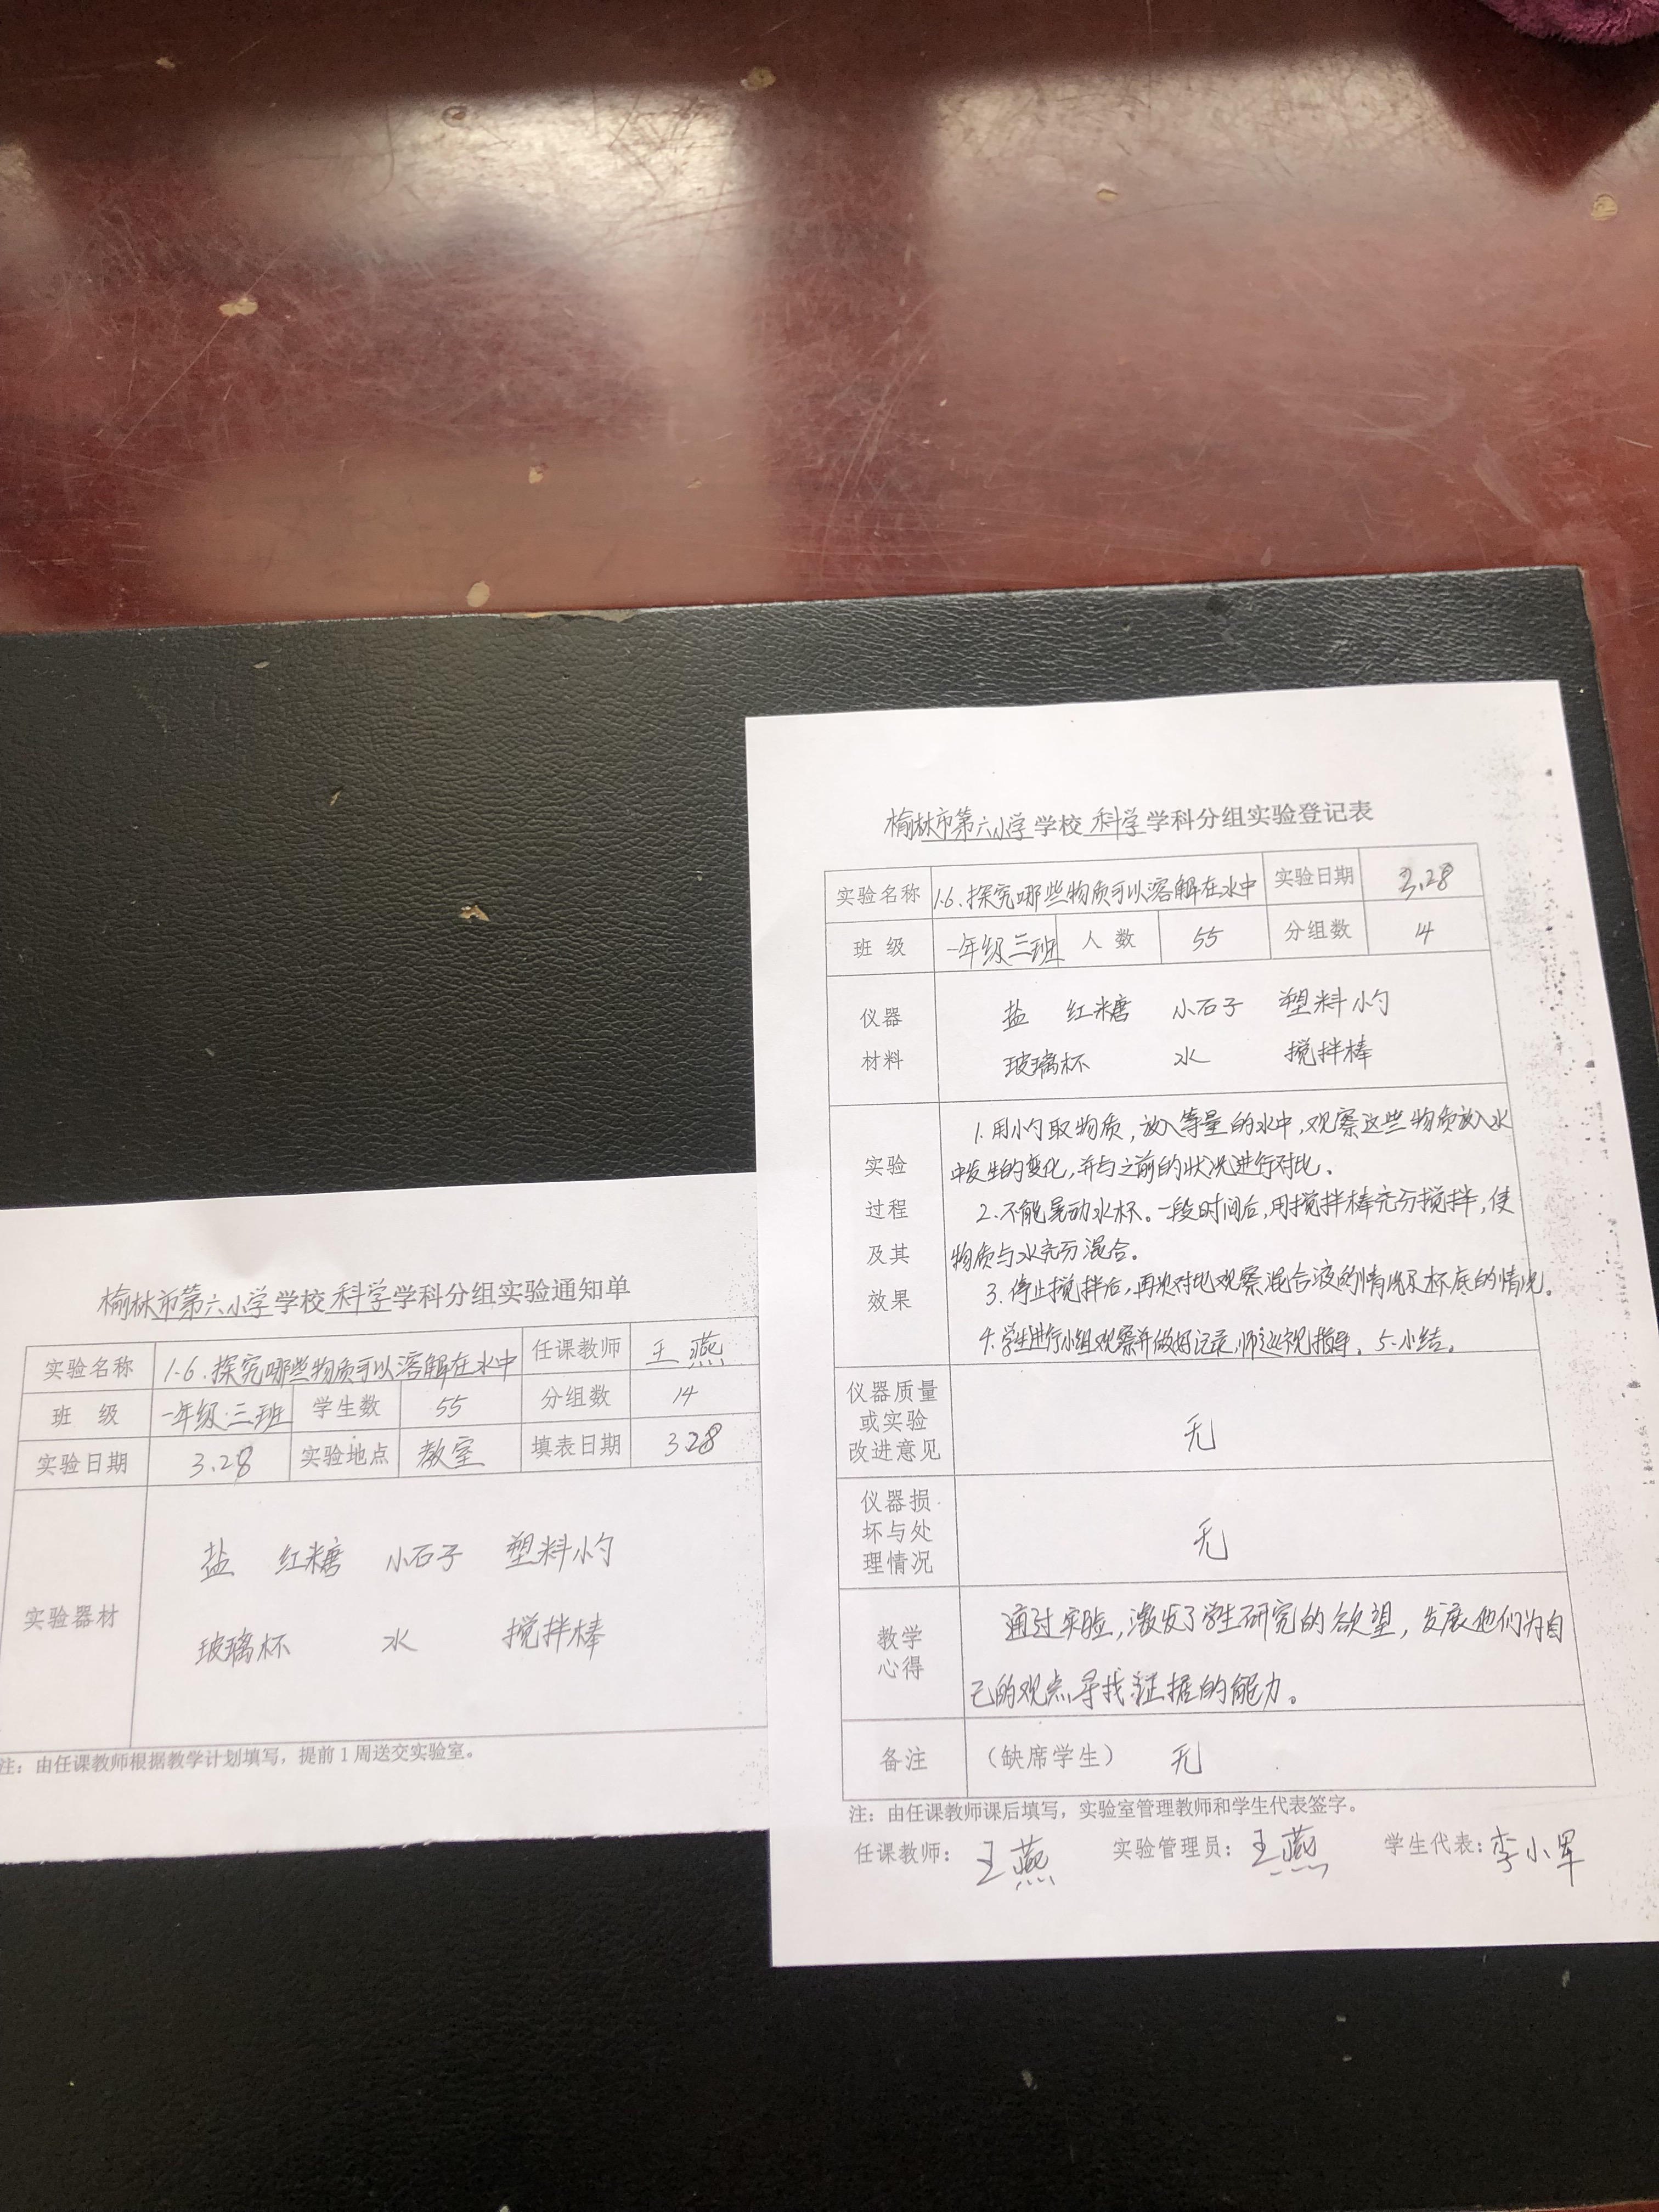 榆林市第六小学学校科学学科分组实验通知单
实验名称 1.6.探究哪些物质可以溶解在水中 任课教师 王燕
班 级 一年级三班 学生数 55 分组数 14
实验日期 3.28 实验地点 教室 填表日期 3.28
实验器材
盐 红糖 小石子 塑料小勺
玻璃杯 水 搅拌棒
注：由任课教师根据教学计划填写，提前1周送交实验室。
榆林市第六小学学校科学学科分组实验登记表
实验名称 1.6.探究哪些物质可以溶解在水中 实验日期 3.28
班 级 一年级三班 人 数 55 分组数 14
仪器
材料
盐 红糖 小石子 塑料小勺
玻璃杯 水 搅拌棒
实验
过程
及其
效果
1.用小勺取物质，放入等量的水中，观察这些物质放入水
中发生的变化，并与之前的状况进行对比。
2.不能晃动水杯。一段时间后，用搅拌棒充分搅拌，使
物质与水充分混合。
3.停止搅拌后，再次对比观察混合液的情况及杯底的情况。
4.学生进行小组观察并做好记录，师巡视指导。5.小结。
仪器质量
或实验
改进意见
无
仪器损
坏与处
理情况
无
教学
心得
通过实验，激发了学生研究的欲望，发展他们为自
己的观点寻找证据的能力。
备注 （缺席学生） 无
注：由任课教师课后填写，实验室管理教师和学生代表签字。
任课教师：王燕 实验管理员：王燕 学生代表：李小军